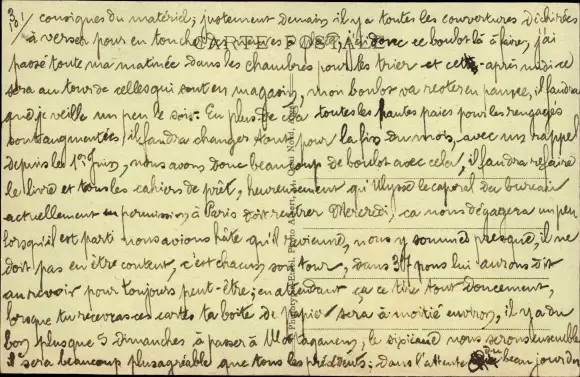 3/10/ consignes du matériel; justement demain, il y a toutes les couvertures déchirées
à verser pour en toucher d'autres j'ai donc ce boulot là à faire, j'ai
passé toute ma matinée dans les chambres pour les trier et cette après midi ce
sera au tour de celles qui sont en magasin, mon boulot va rester en panne, il faudra
que je veille un peu le soir. En plus de ça toutes les hautes paies pour les rengagés
sont augmentées, il faudra changer tout pour la fin du mois, avec un rappel
depuis le 1er Juin, nous avons donc beaucoup de boulot avec cela, il faudra refaire
le livre et tous les cahiers de prêt, heureusement qu'Ulysse le caporal du bureau
actuellement en permission à Paris doit rentrer Mercredi, ça nous dégagera un peu
lorsqu'il est parti nous avions hâte qu'il revienne, nous y sommes presque, il ne
doit pas en être content, c'est chacun son tour, dans 307 nous lui aurons dit
au revoir pour toujours peut-être; en attendant ça ce tire tout doucement,
lorsque tu recevras ces cartes ta boîte de papier sera à moitié environ, il y a du
bon plus que 5 dimanches à passer à Mostaganem, le sixième nous serons ensemble
il sera beaucoup plus agréable que tous les précédents. Dans l'attente du beau jour du
CARTE POSTALE